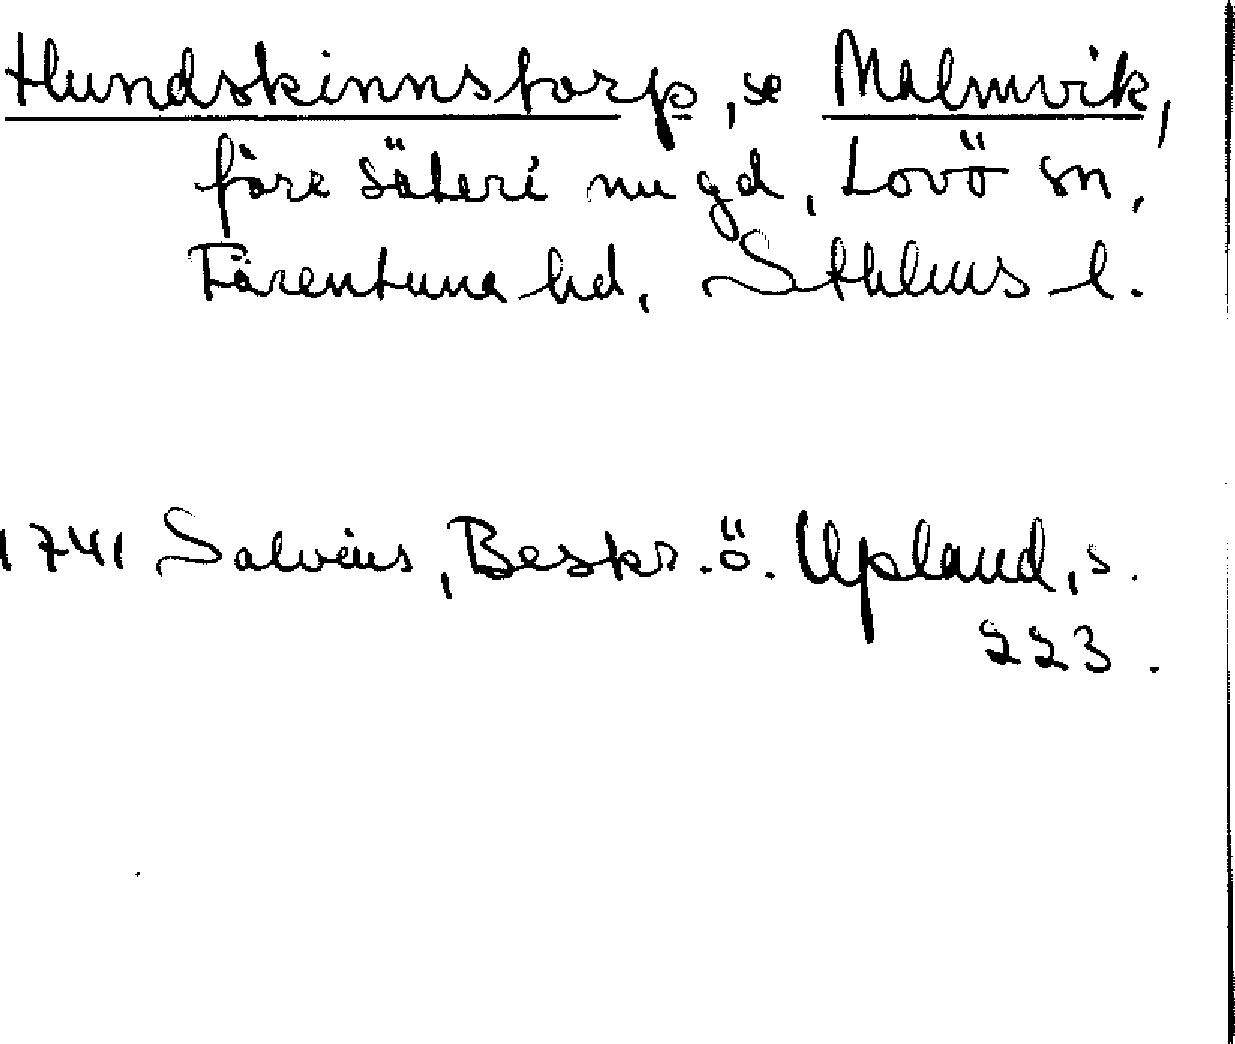 Hundskinnstorp, se Malmvik,
före säteri nu gd, Lovö sn,
Färentuna hd, Sthlms l.
1741 Salvius, Beskr. ö. Upland, s.
223.